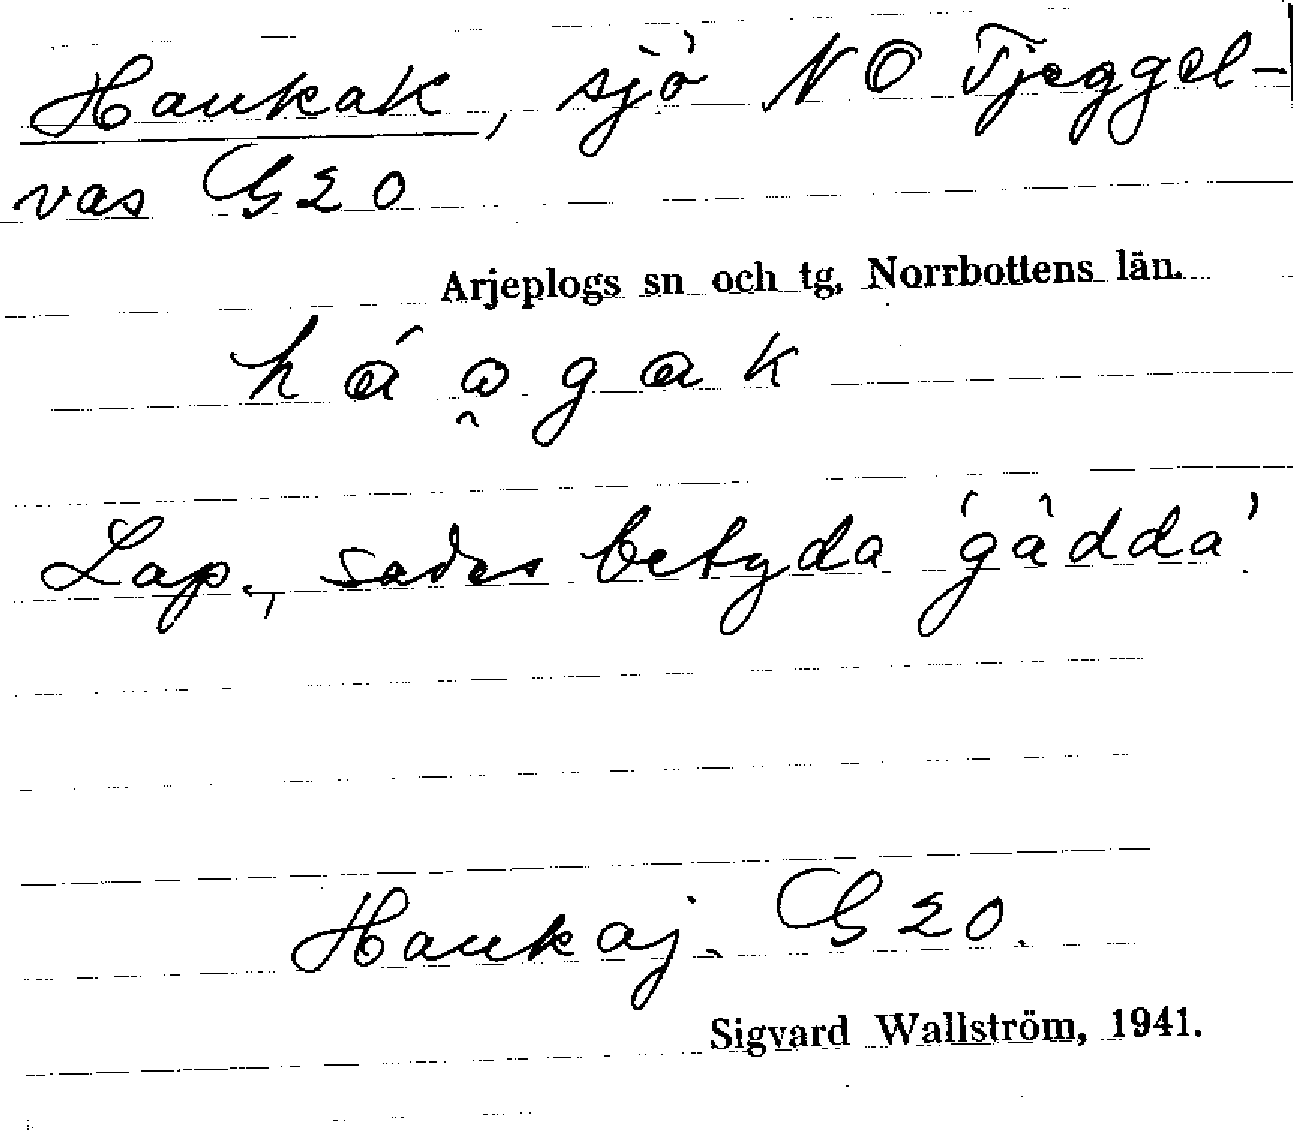 Haukak, sjö NO Tjeggel-
vas G20
Arjeplogs sn och tg, Norrbottens län.
há o̯ g a k
Lap., sades betyda 'gädda'
Haukaj. G20.
Sigvard Wallström, 1941.